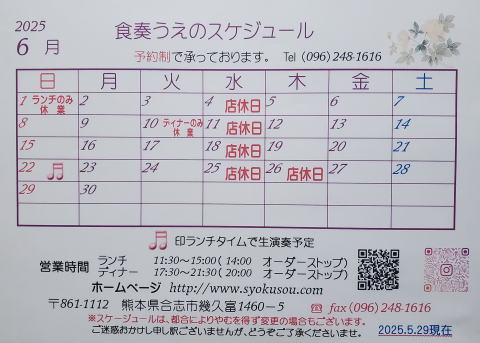 2025
6 月
食奏うえのスケジュール
予約制で承っております。 Tel (096) 248-1616
日 月 火 水 木 金 土
1 ランチのみ休業 2 3 4 店休日 5 6 7
8 9 10 ディナーのみ休業 11 店休日 12 13 14
15 16 17 18 店休日 19 20 21
22 23 24 25 店休日 26 店休日 27 28
29 30
印ランチタイムで生演奏予定
営業時間 ランチ 11:30~15:00( 14:00 オーダーストップ)
ディナー 17:30~21:30( 20:00 オーダーストップ)
ホームページ http://www.syokusou.com
〒861-1112 熊本県合志市幾久富1460-5 fax (096) 248-1616
※スケジュールは、都合によりやむを得ず変更の場合もございます。
ご迷惑おかけし申し訳ございませんが、どうぞご了承くださいませ。 2025.5.29現在